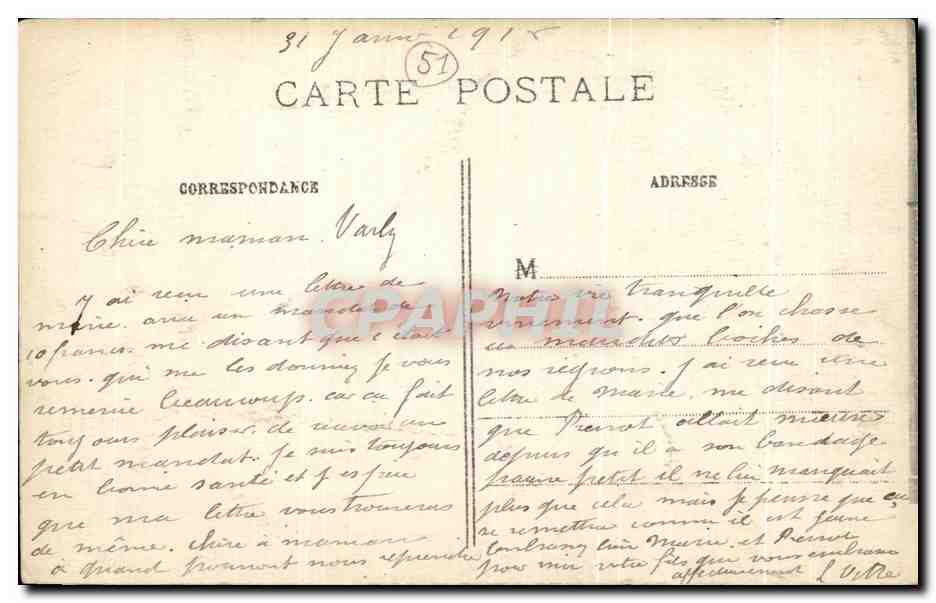 31 Janvier 191
51
CARTE POSTALE
CORRESPONDANCE
ADRESSE
Chère maman Varly
J ai recu une lettre de
marie. avec un mandat de
10 francs. me disant que c etait
vous. qui me les donniez je vous
remercie beaucoup. car ca fait
toujours plaisir. de recevoir un
petit mandat. je suis toujours
en bonne santé et j espere
que ma lettre vous trouveras
de même. chère maman
à quand pourront nous reprendre
M
Notre vie tranquille
vivement. que l'on chasse
ces maudits boches de
nos régions. J ai recu une
lettre de Marie. me disant
que Pierrot allait mieux
depuis qu il a son bandage
pauvre petit il ne lui manquait
plus que cela mais je pense que ca
se remettra comme il est jeune
bien Marie. et Pierrot
pour moi votre fils que vous embrasse
affectueusement
CPAPHIL